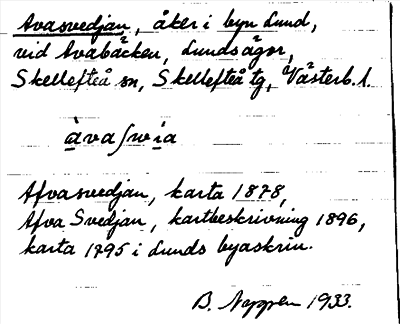 Avasvedjan, åker i byn Lund,
vid Avabäcken, Lundsågor,
Skellefteå sn, Skellefteå tg, Västerb. l.
àvaʃwìa
Afvasvedjan, karta 1878,
Afva Svedjan, kartbeskrivning 1896,
karta 1795 i Lunds byaskrin.
B. 1933.